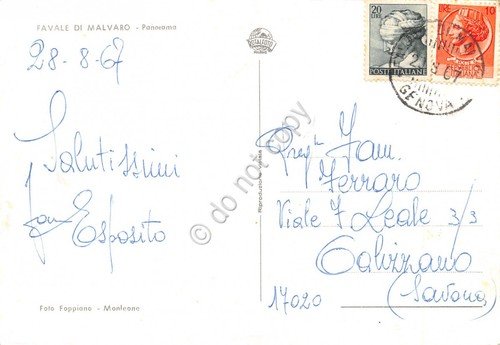 FAVALE DI MALVARO - Panorama
28-8-67
Salutissimi
Fam
Esposito
Foto Foppiano - Monleone
do not copy
20
LIRE
POSTE ITALIANE
10
GENOVA
Preg.
Fam.
Ferraro
Viale F. Leale 3/3
Calizzano
(Savona)
17020